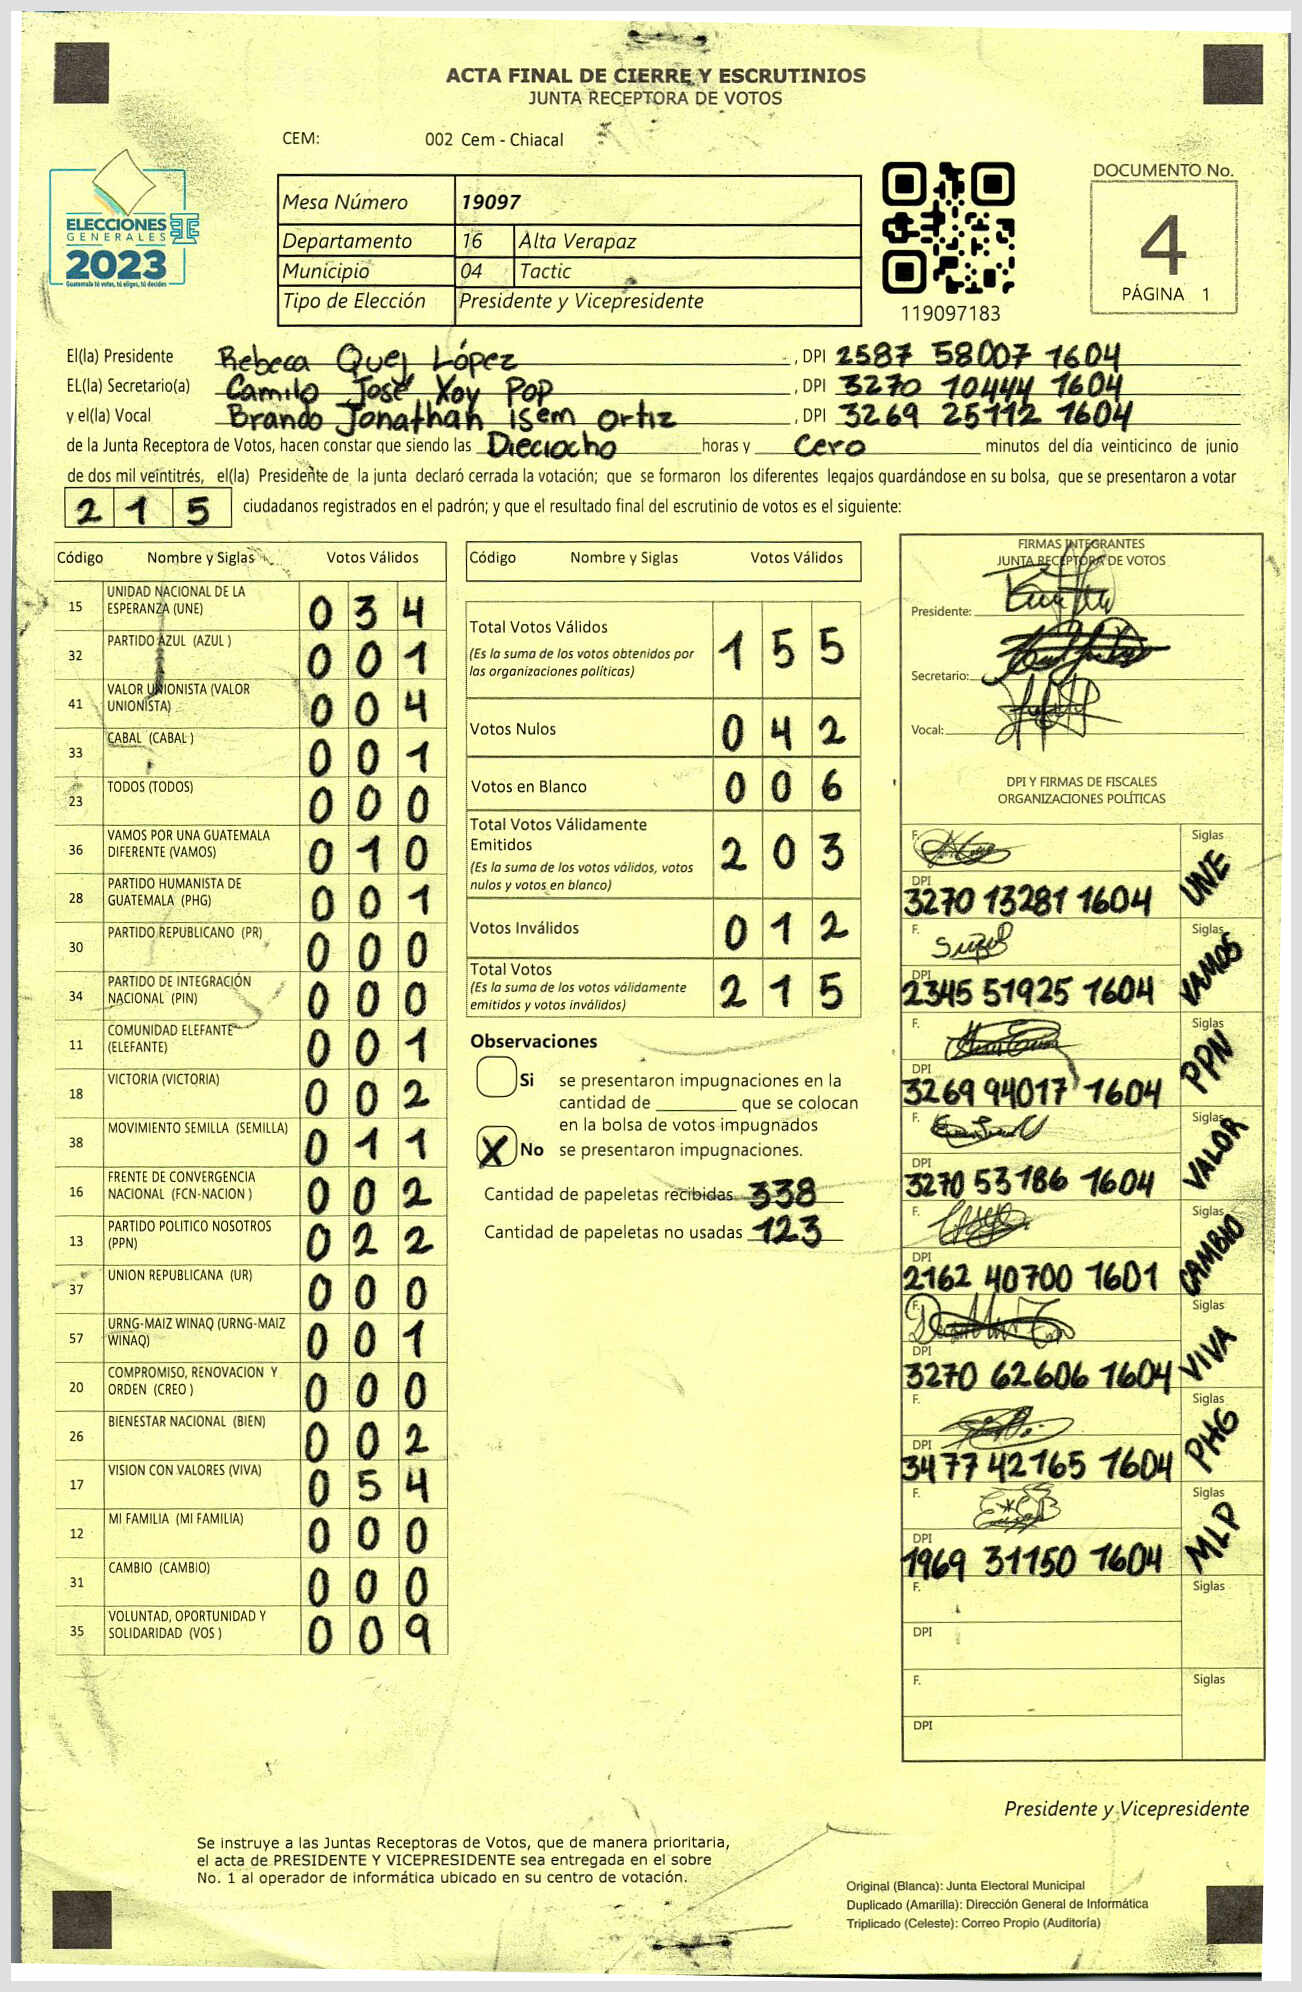 ACTA FINAL DE CIERRE Y ESCRUTINIOS
JUNTA RECEPTORA DE VOTOS
CEM: 002 Cem - Chiacal
ELECCIONES
GENERALES
2023
Guatemala tú votes, tú eliges, tú decides
Mesa Número 19097
Departamento 16 Alta Verapaz
Municipio 04 Tactic
Tipo de Elección Presidente y Vicepresidente
119097183
DOCUMENTO No.
4
PÁGINA 1
El(la) Presidente Rebeca Quej López , DPI 2587 58007 1604
EL(la) Secretario(a) Camilo José Xoy Pop , DPI 3270 10444 1604
y el(la) Vocal Brando Jonathan Isem Ortiz , DPI 3269 25112 1604
de la Junta Receptora de Votos, hacen constar que siendo las Dieciocho horas y Cero minutos del día veinticinco de junio
de dos mil veintitrés, el(la) Presidente de la junta declaró cerrada la votación; que se formaron los diferentes legajos guardándose en su bolsa, que se presentaron a votar
2 1 5 ciudadanos registrados en el padrón; y que el resultado final del escrutinio de votos es el siguiente:
Código Nombre y Siglas Votos Válidos
15 UNIDAD NACIONAL DE LA ESPERANZA (UNE) 0 3 4
32 PARTIDO AZUL (AZUL ) 0 0 1
41 VALOR UNIONISTA (VALOR UNIONISTA) 0 0 4
33 CABAL (CABAL ) 0 0 1
23 TODOS (TODOS) 0 0 0
36 VAMOS POR UNA GUATEMALA DIFERENTE (VAMOS) 0 1 0
28 PARTIDO HUMANISTA DE GUATEMALA (PHG) 0 0 1
30 PARTIDO REPUBLICANO (PR) 0 0 0
34 PARTIDO DE INTEGRACIÓN NACIONAL (PIN) 0 0 0
11 COMUNIDAD ELEFANTE (ELEFANTE) 0 0 1
18 VICTORIA (VICTORIA) 0 0 2
38 MOVIMIENTO SEMILLA (SEMILLA) 0 1 1
16 FRENTE DE CONVERGENCIA NACIONAL (FCN-NACION ) 0 0 2
13 PARTIDO POLITICO NOSOTROS (PPN) 0 2 2
37 UNION REPUBLICANA (UR) 0 0 0
57 URNG-MAIZ WINAQ (URNG-MAIZ WINAQ) 0 0 1
20 COMPROMISO, RENOVACION Y ORDEN (CREO ) 0 0 0
26 BIENESTAR NACIONAL (BIEN) 0 0 2
17 VISION CON VALORES (VIVA) 0 5 4
12 MI FAMILIA (MI FAMILIA) 0 0 0
31 CAMBIO (CAMBIO) 0 0 0
35 VOLUNTAD, OPORTUNIDAD Y SOLIDARIDAD (VOS ) 0 0 9
Código Nombre y Siglas Votos Válidos
Total Votos Válidos 1 5 5
(Es la suma de los votos obtenidos por
las organizaciones políticas)
Votos Nulos 0 4 2
Votos en Blanco 0 0 6
Total Votos Válidamente
Emitidos 2 0 3
(Es la suma de los votos válidos, votos
nulos y votos en blanco)
Votos Inválidos 0 1 2
Total Votos 2 1 5
(Es la suma de los votos válidamente
emitidos y votos inválidos)
Observaciones
Si se presentaron impugnaciones en la
cantidad de ________ que se colocan
en la bolsa de votos impugnados
X No se presentaron impugnaciones.
Cantidad de papeletas recibidas 338
Cantidad de papeletas no usadas 123
FIRMAS INTEGRANTES
JUNTA RECEPTORA DE VOTOS
Presidente:
Secretario:
Vocal:
DPI Y FIRMAS DE FISCALES
ORGANIZACIONES POLÍTICAS
F. Siglas
DPI 3270 13281 1604 UNE
F. Siglas
DPI 2345 51925 1604 VAMOS
F. Siglas
DPI 3269 94017 1604 PPN
F. Siglas
DPI 3270 53186 1604 VALOR
F. Siglas
DPI 2162 40700 1601 CAMBIO
F. Siglas
DPI 3270 62606 1604 VIVA
F. Siglas
DPI 3477 42165 1604 PHG
F. Siglas
DPI 1969 31150 1604 MLP
F. Siglas
DPI
F. Siglas
DPI
Presidente y Vicepresidente
Se instruye a las Juntas Receptoras de Votos, que de manera prioritaria,
el acta de PRESIDENTE Y VICEPRESIDENTE sea entregada en el sobre
No. 1 al operador de informática ubicado en su centro de votación.
Original (Blanca): Junta Electoral Municipal
Duplicado (Amarilla): Dirección General de Informática
Triplicado (Celeste): Correo Propio (Auditoría)